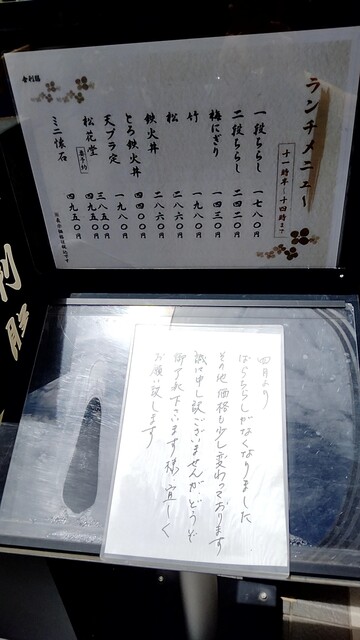 ランチメニュー
十一時半〜十四時まで
一段ちらし 一七八〇円
二段ちらし 二四二〇円
梅にぎり 一四三〇円
竹 一九八〇円
松 二八六〇円
鉄火丼 二八六〇円
とろ鉄火丼 四四〇〇円
天プラ定 一九八〇円
松花堂 三八五〇円
要予約 四九五〇円
ミニ懐石 四九五〇円
舎利膳
利膳
四月より
ばらちらしがなくなりました
その他価格も少し変わっております
誠に申し訳ございませんがどうぞ
御了承下さいます様 宜しく
お願い致します